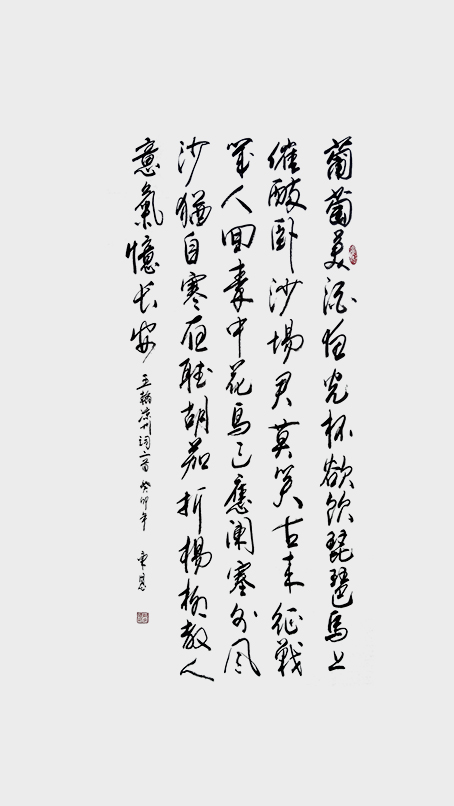 葡萄美酒夜光杯欲飲琵琶馬上
催醉卧沙場君莫笑古来征戰
幾人回秦中花鳥已應闌塞外風
沙猶自寒夜聽胡笳折楊柳教人
意氣憶长安
王翰凉州词二首 癸卯年